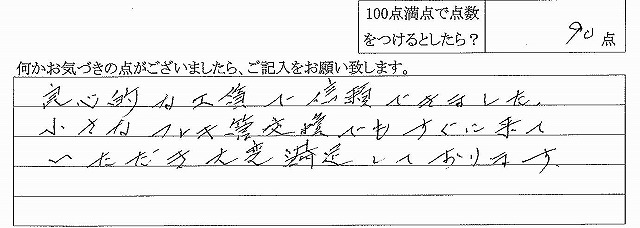 100点満点で点数
をつけるとしたら？ 90点
何かお気づきの点がございましたら、ご記入をお願い致します。
良心的な工領で信頼できました。
小さなフレキ管交換でもすぐに来て
いただき大変満足しております。